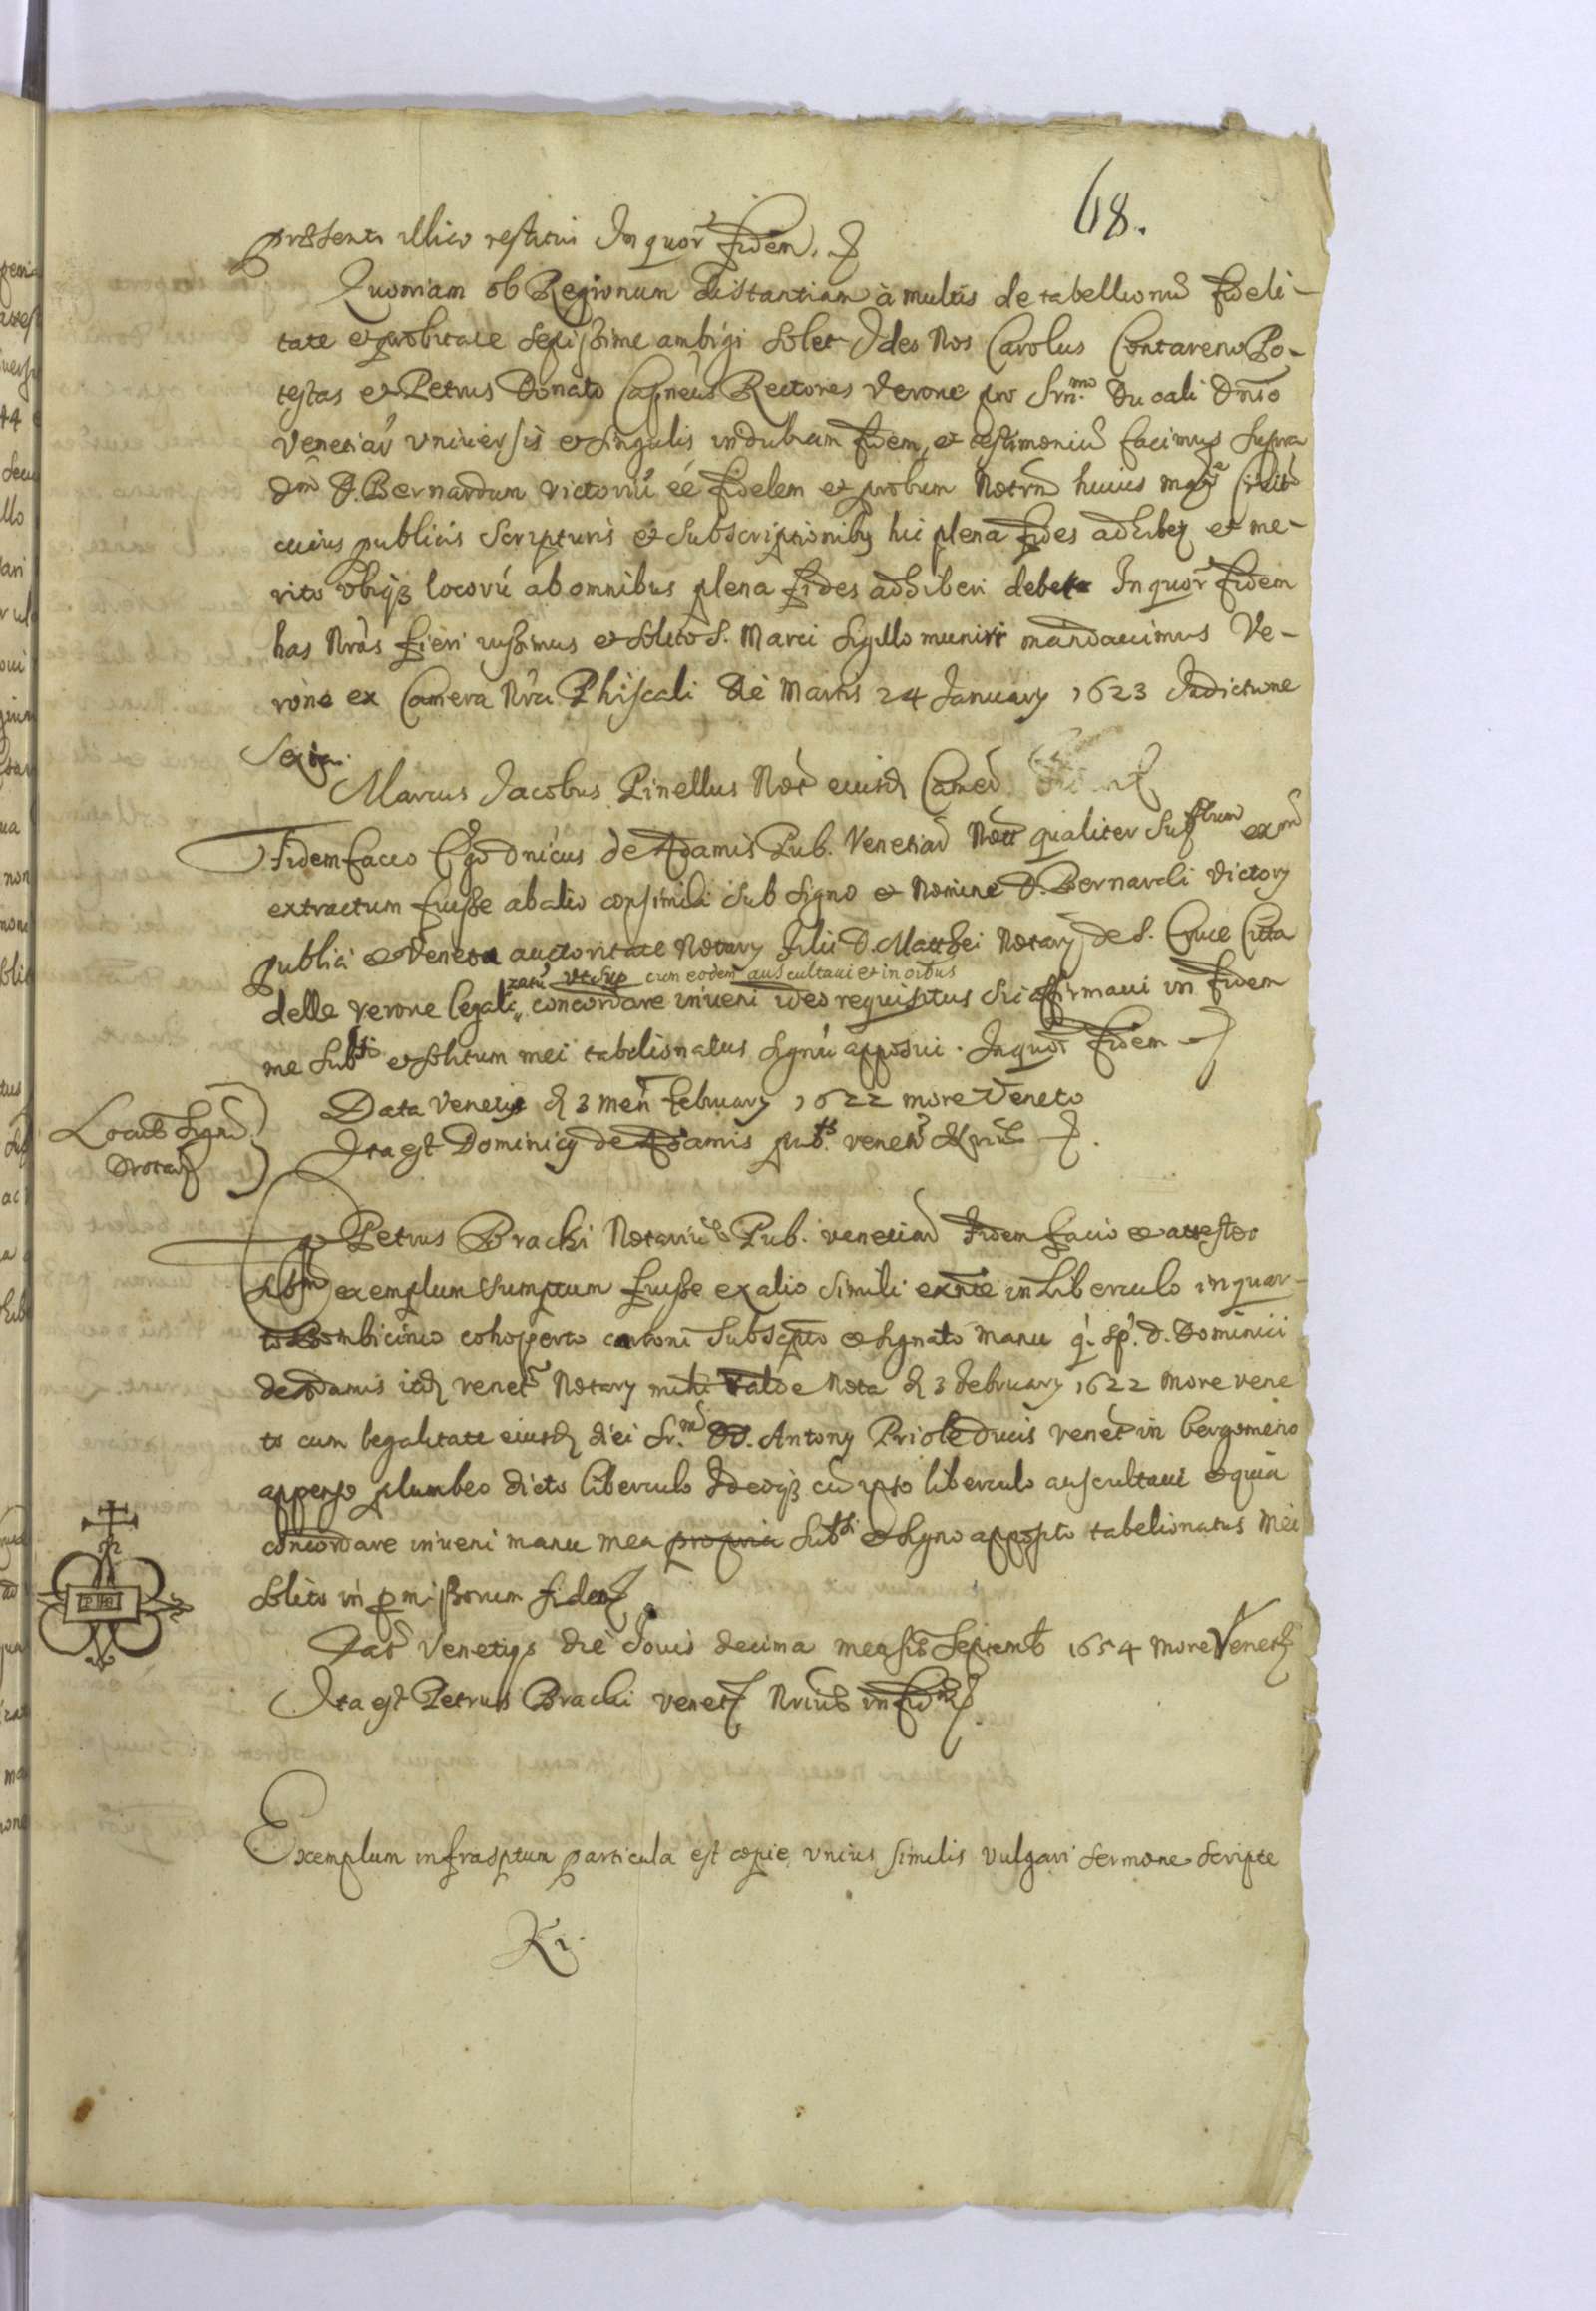 68.
presenti illico restitui In quor fidem.
Quoniam ob Regionum distantiam à multis de tabellionũ fideli-
tate et probitate sepissime ambigi solet Ideo Nos Carolus Contareno Po-
testas et Petrus Donato Capneus Rectores Verone pro Srm.mo Ducali Dñio
Venetiar universis et singulis indubiam fidem, et testimoniũ facimus supra
dm D. Bernardum Victoriũ eé fidelem et probum Notrm huius mag.ce Civit
cuius publicis scripturis et subscriptionibus hic plena fides adhibet et me-
rito ubiq locorũ ab omnibus plena fides adhiberi debet In quor fidem
has Nras fieri iussimus et solito S. Marci sigillo muniri mandavimus Ve-
rone ex Camera Nra Phiscali die Martis 24 January 1623 Indictione
Sexta.
Marcus Jacobus Pinellus Not eiusd Camer
Fidem facio Ego Dnicus de Adamis Pub. Venetiar Nott qualiter
extractum fuisse ab alio consimili sub signo et Nomine D. Bernardi Victory
publici et Veneta auctoritate Notary filii D. Matthei Notary de S. Cruce Citta
zatu ut sup cum eodem auscultavi et in oibus
delle verone legali concordare inveni ideo requisitus sic affirmavi in fidem
me subsi et solitum mei tabelionatus signũ apposui. In quor fidem
Data Venetijs d 3 men february 1622 more Veneto
Ita est Dominicus de Adamis pub. venet
Locus signi
Notarij
Ego Petrus Bracchi Notarius Pub. venetiar fidem facio et attestor
exemplum sumptum fuisse ex alio simili exnte in Liberculo in quar-
to bombicineo cohoperto cartoni subscpto et signato manu q. sp. d. Dominici
de Adamis itd venet Notary mihi valde nota d 3 february 1622 more vene
to cum legalitate eiusd diei Sr.mi DD. Antony Priole Ducis venet in bergameno
appenso plumbeo dicto liberculo Ideoq cũ ipso liberculo auscultavi et quia
concordare inveni manu mea propria subsi et signo apposito tabelionatus mei
solito in pmissorum fidem
P B
Dat Venetijs die Jovis decima mensis Septemb 1654 more Venet
Ita est Petrus Bracchi venet Nrius in fidem
Exemplum infrasptum particula est copie unius similis vulgari sermone scripte